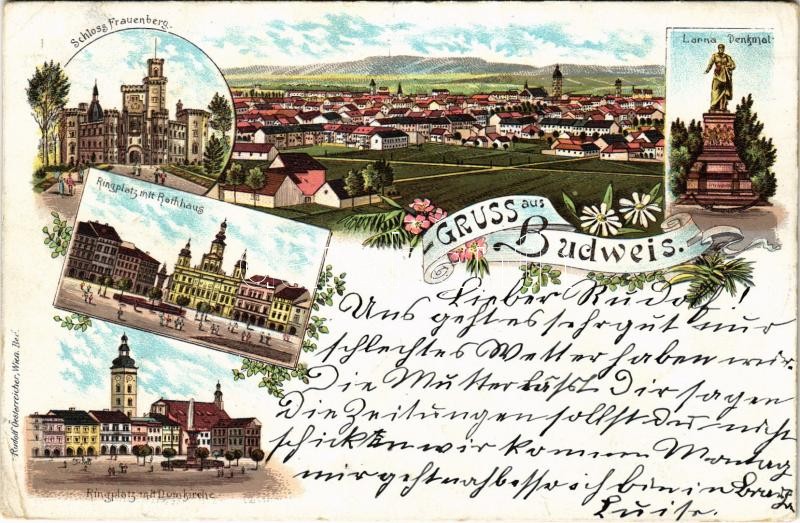 Schloss Frauenberg.
Lanna Denkmal
Ringplatz mit Rathhaus
GRUSS aus
Budweis.
Ringplatz mit Domkirche
Rudolf Oesterreicher, Wien.
Lieber Rudolf!
Uns geht es sehr gut nur
schlechtes Wetter haben wir.
Die Mutter lässt Dir sagen
Die Zeitungen sollst du nicht
schicken wir kommen Montag
mir geht ich bin in
Luise.